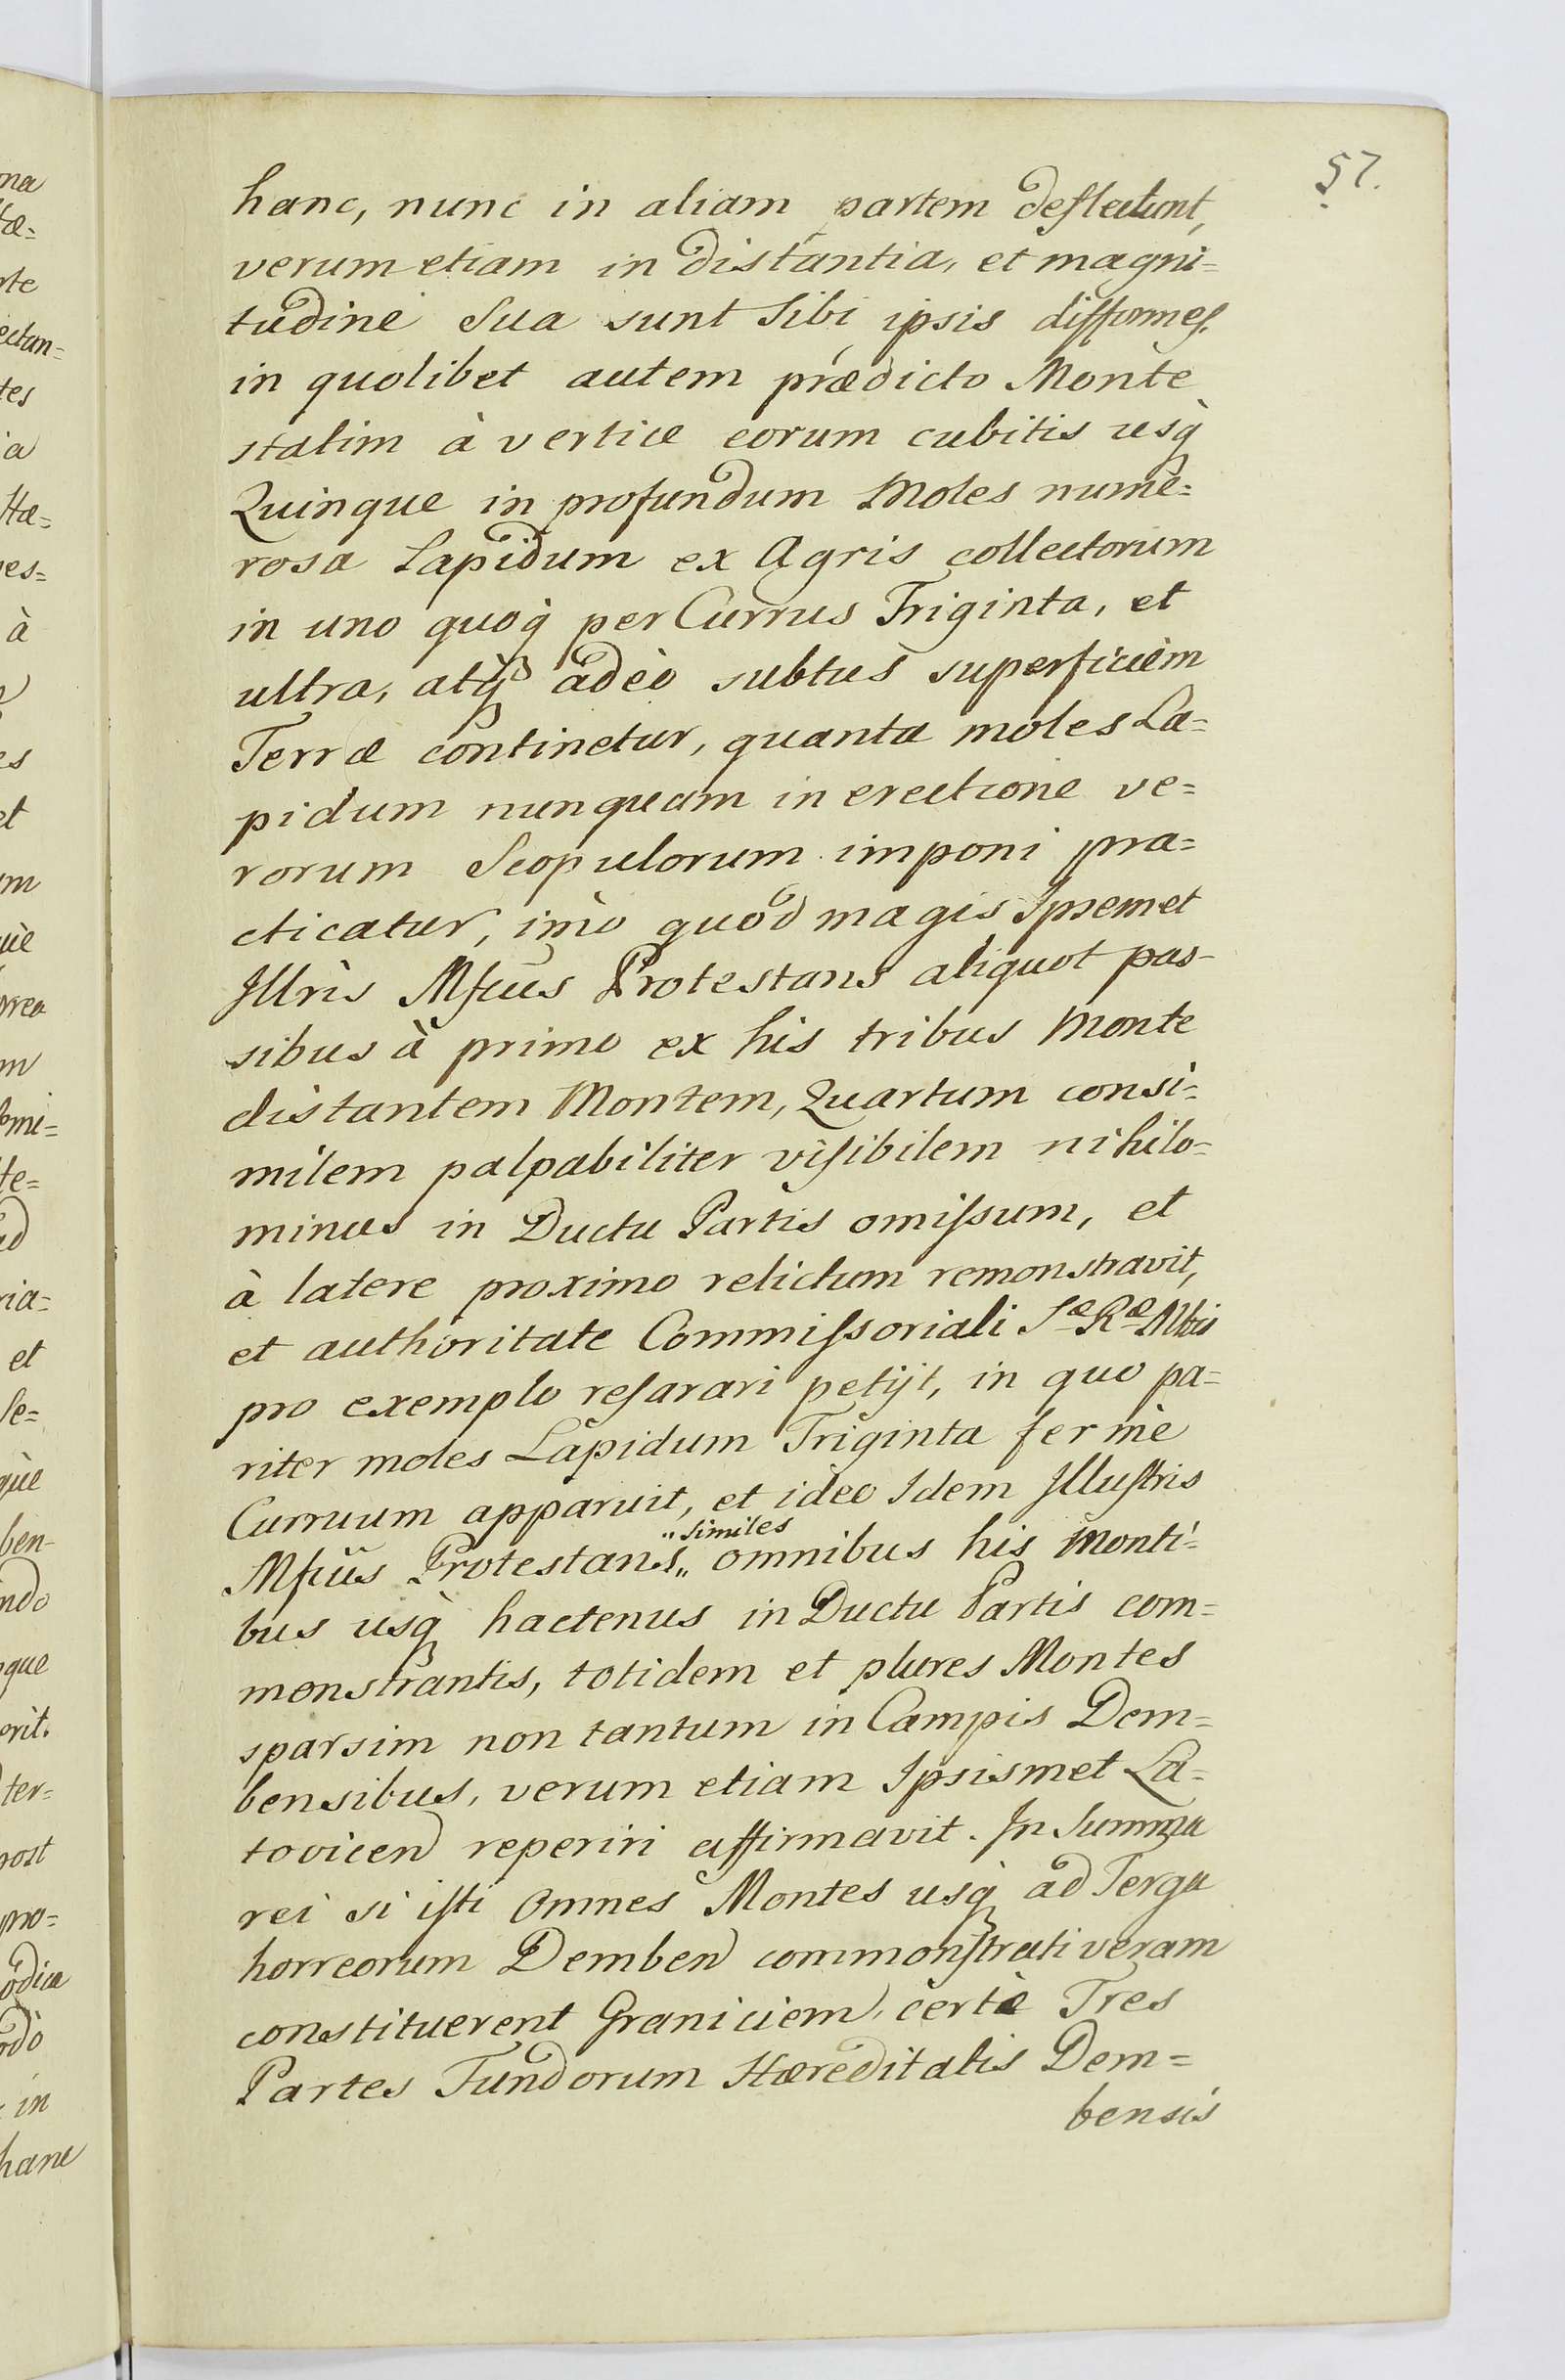 57.
hanc, nunc in aliam partem deflectunt,
verum etiam in distantia, et magni=
tudine Sua sunt Sibi ipsis difformes.
in quolibet autem prædicto Monte
statim à vertice eorum cubitis usq̀
Quinque in profundum Moles nume=
rosa Lapidum ex Agris collectorum
in uno quoq̀ per Currus Triginta, et
ultra, atq̀ adèo subtus superficiem
Terræ continetur, quanta moles La=
pidum nunquam in erectione ve=
rorum Scopulorum imponi pra=
cticatur, imò quod magis Ipsemet
Jllris Mfcus Protestans aliquot pas-
sibus à primo ex his tribus Monte
distantem Montem, Quartum consi=
milem palpabiliter visibilem nihilo=
minus in Ductu Partis omissum, et
à latere proximo relictum remonstravit,
et authoritate Commissoriali Sæ Ræ Mtis
pro exemplo resarari petijt, in quo pa=
riter moles Lapidum Triginta fermè
Curruum apparuit, et ideo Idem Jllustris
Mfcus Protestans „similes„ omnibus his Monti=
bus usq̀ hactenus in Ductu Partis com=
monstrantis, totidem et plures Montes
sparsim non tantum in Campis Dem=
bensibus, verum etiam Ipsismet La=
tovicen reperiri affirmavit. Jn Summa
rei si isti Omnes Montes usq̀ ad Terga
horreorum Demben commonstrati veram
constituerent Graniciem, certè Tres
Partes Fundorum Hæreditatis Dem=
bensis